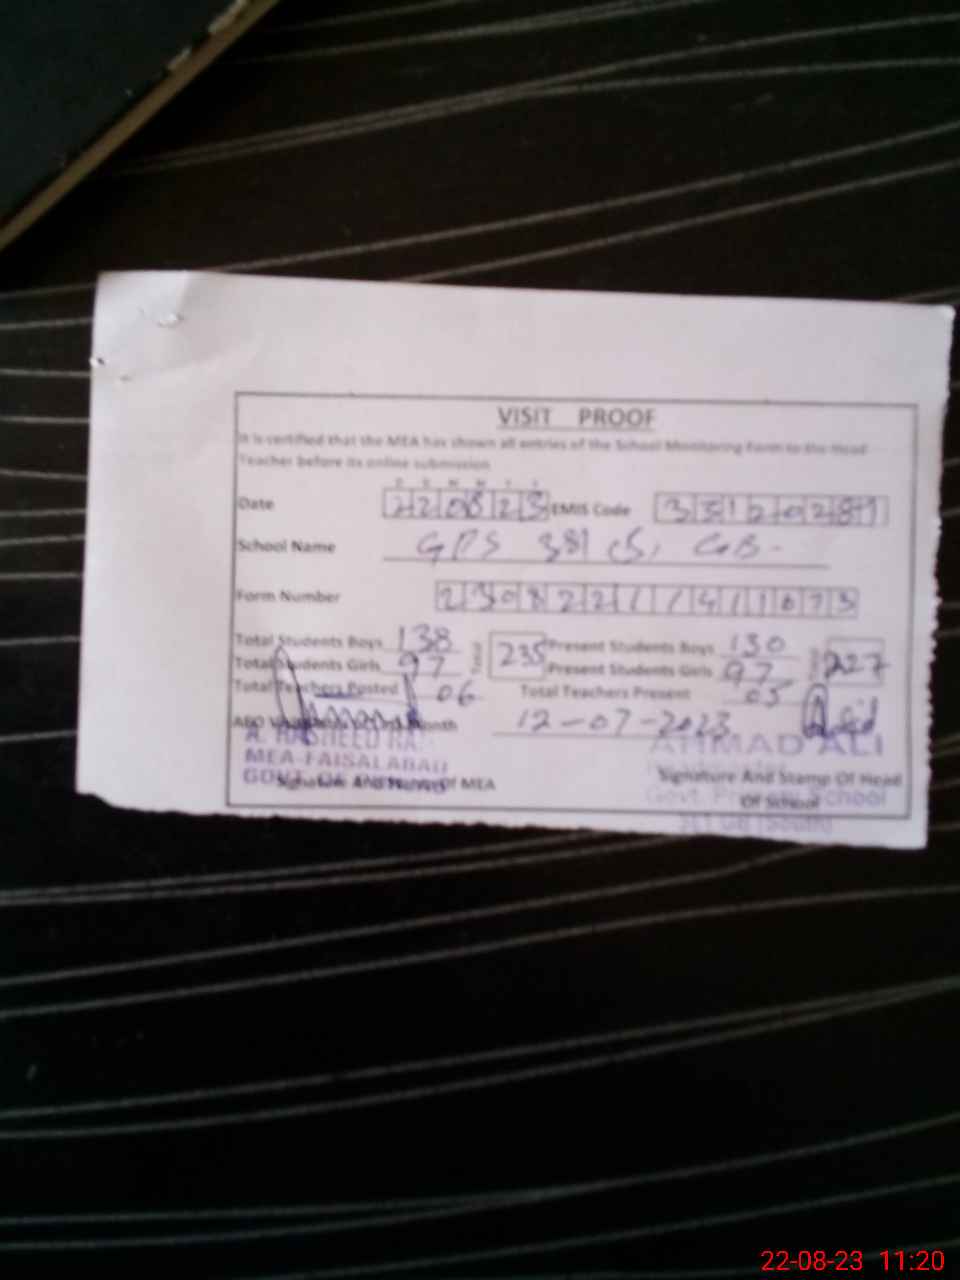 VISIT PROOF
It is certified that the MEA has shown all entries of the School Monitoring Form to the Head
Teacher before its online submission
D D M M Y Y
Date 220823 EMIS Code 33120281
School Name GPS 381 (S) GB.
Form Number
Total Students Boys 138 Total 235 Present Students Boys 130 227
Total Students Girls 97 Present Students Girls 97
Total Teachers Posted 06 Total Teachers Present 05
AEO Month 12-07-2023
A. RASHEED
MEA-FAISALABAD
GOVT. OF
Signature And Of MEA
AHMAD ALI
Signature And Stamp Of Head
Of School
Govt. Primary School
381 GB (South)
22-08-23 11:20